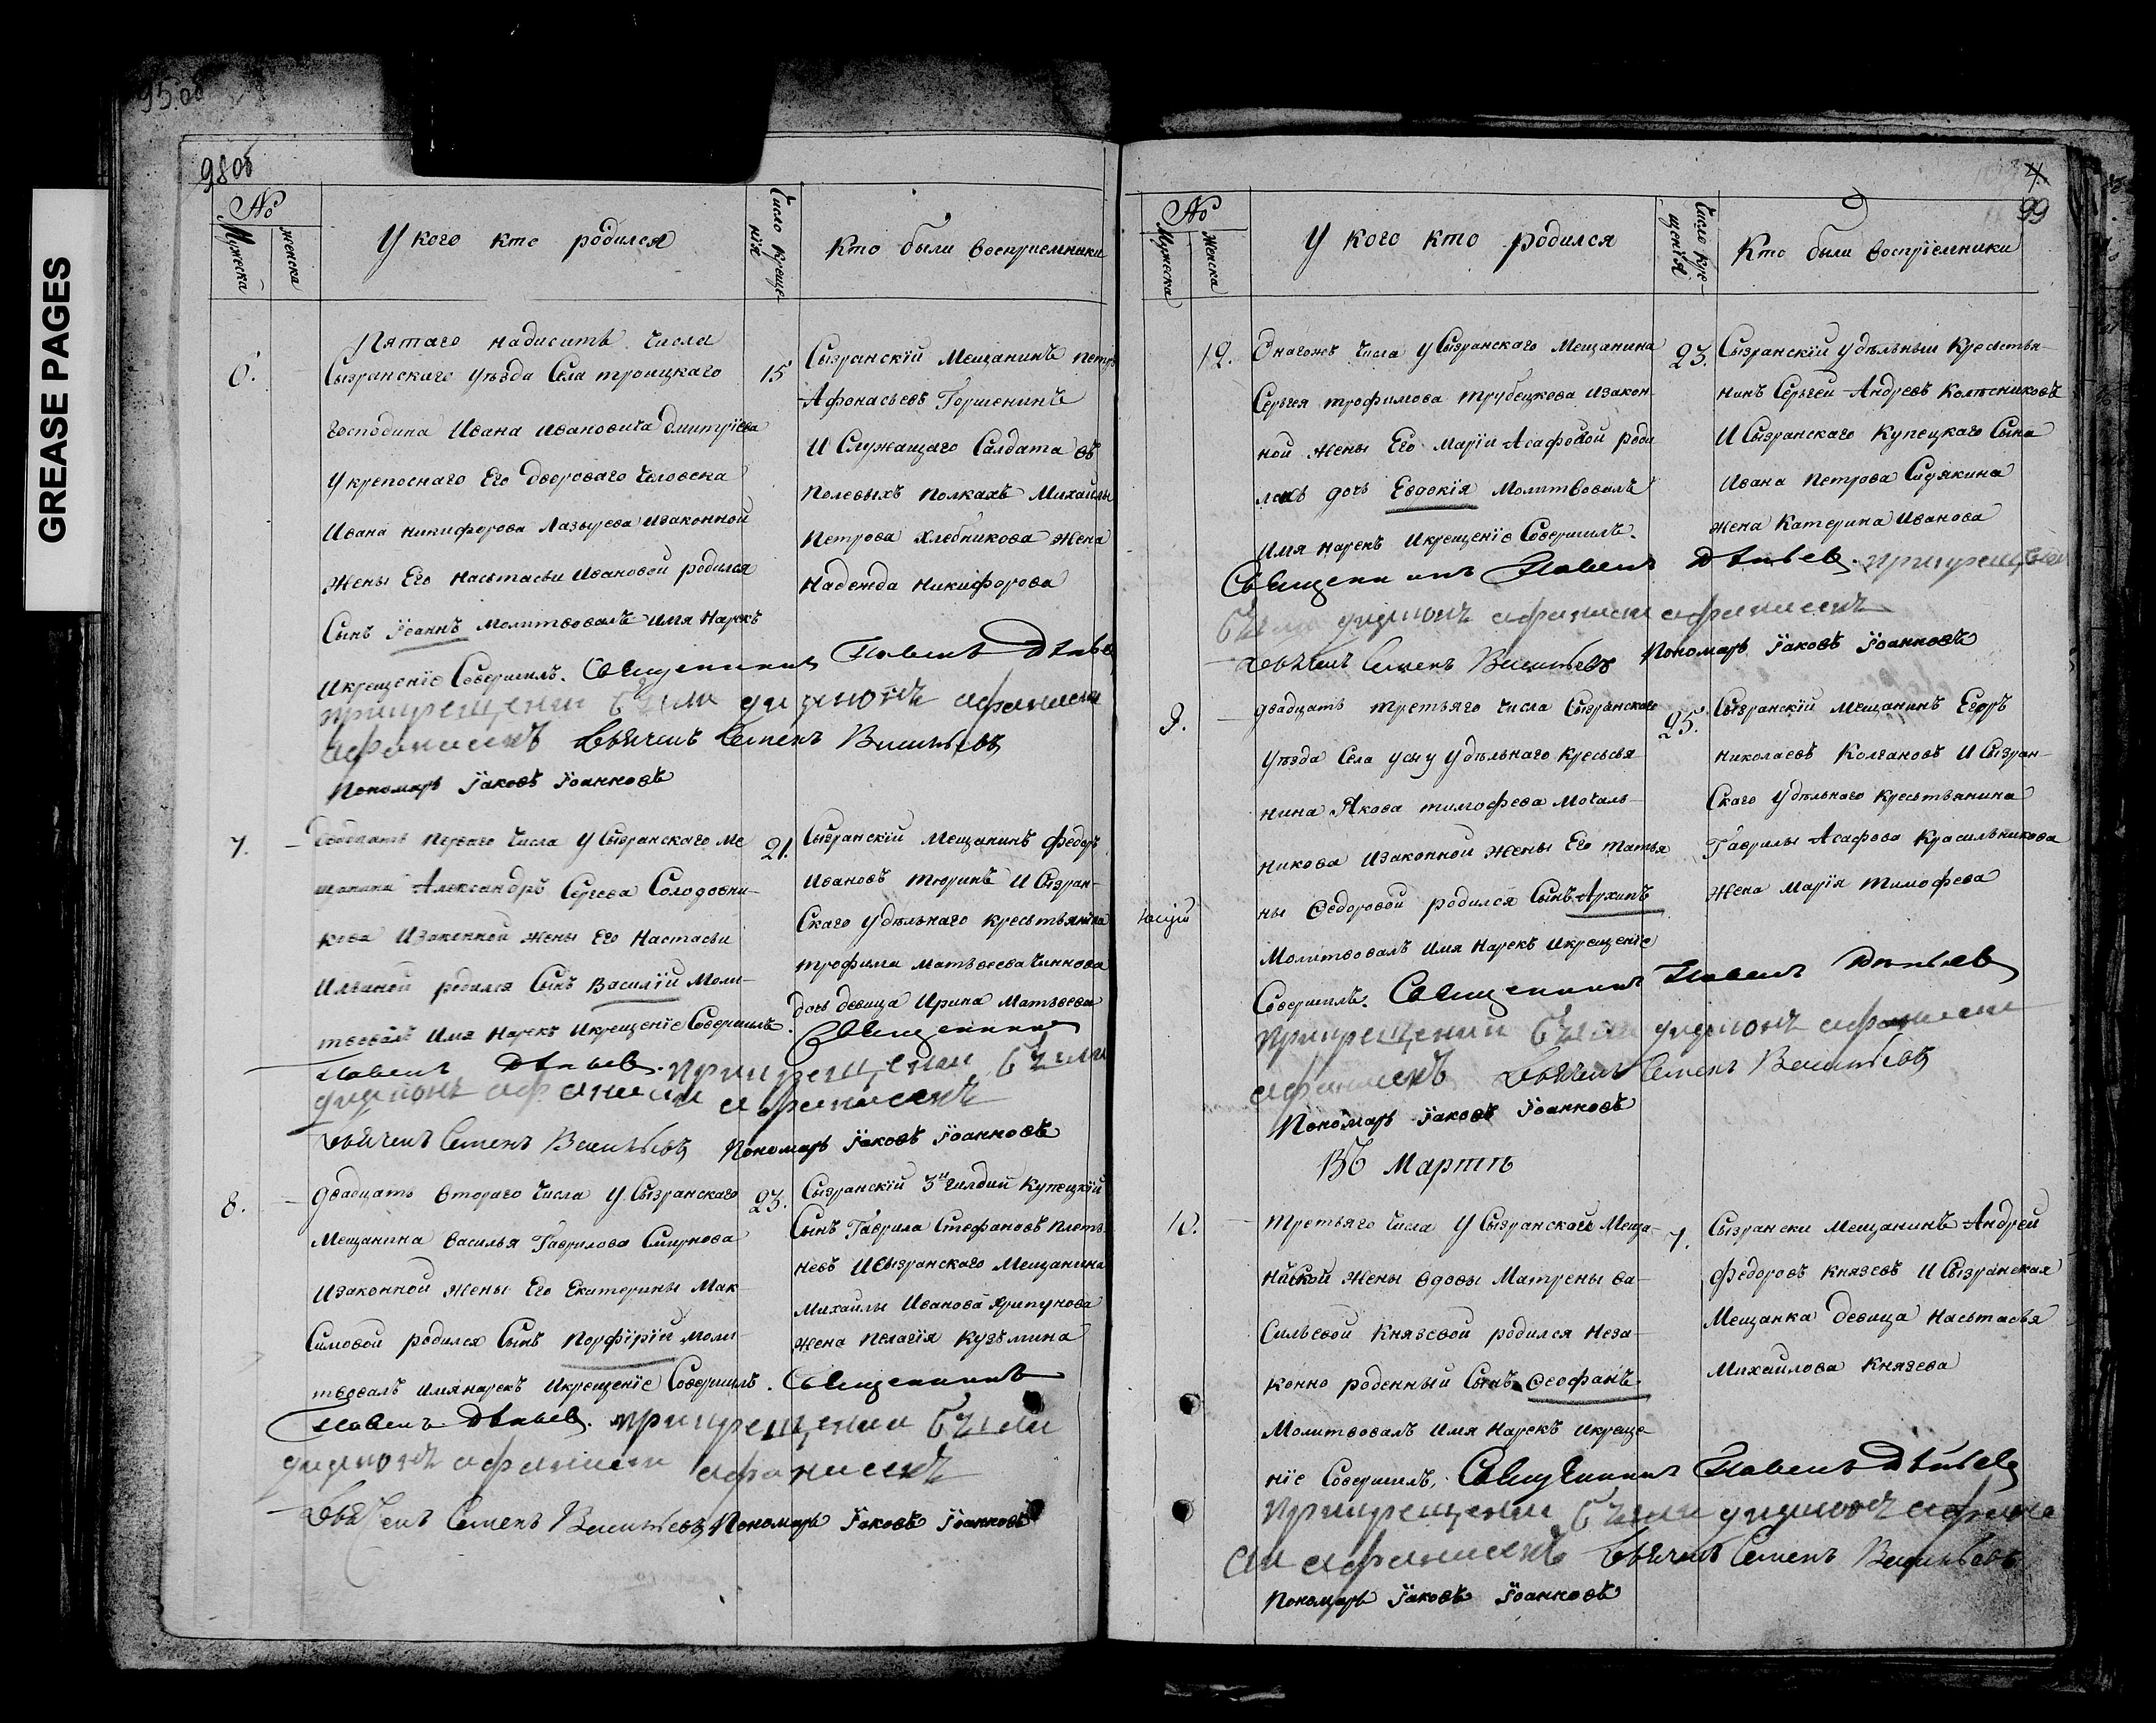 GREASE PAGES
98 об
№
Мужеска
женска
У кого кто родился
Число креще-
нія
Кто были восприемники
6.
Пятаго надисить числа
Сызранскаго уѣзда Села троицкаго
господина Ивана Ивановича дмитріева
у крепоснаго Его дворовага человека
Ивана никифорова Лазырева изаконной
жены Его насьтасьи Ивановой родился
Сынъ Іоаннъ молитвовалъ имя нарекъ
икрещеніе Совершилъ. Священникъ Павелъ
прикрещении были
Семенъ Васильевъ
Пономарь Іаковъ Іоанновъ
15
Сызранскій Мещанинъ петръ
Афонасьевъ Горшенинъ
И Служащаго Салдата въ
полевыхъ полкахъ Михаилы
петрова хлебникова жена
надежда никифорова
7.
двадцать перваго числа У Сызранскаго Ме
щанина Александръ Сергева Солодовни-
кова Изаконной жены Его Настасьи
Ильиной родился Сынъ Василій Моли-
твовалъ Имя Нарекъ Икрещеніе Совершилъ.
Священникъ
Павелъ прикрещении были
Семенъ Васильевъ Пономарь Іаковъ Іоанновъ
21.
Сызранскій Мещанинъ федоръ
Ивановъ тюринъ И Сызран-
Скаго удѣльнаго кресьтьянина
трофима матвеева
дочь девица Ирина матвеева
8.
двадцать втораго числа У Сызранскаго
мещанина василья Гаврилова Смирнова
изаконной жены Его Екатерины Мак-
Симовой родился Сынъ Порфирій моли-
твовалъ имянарекъ икрещеніе Совершилъ. Священникъ
Павелъ прикрещении были
Семенъ Васильевъ Пономарь Іаковъ Іоанновъ
23.
Сызранскій 3й гилдии Купецкій
Сынъ Гаврила Стефановъ плеть
невъ ИСызранскаго мещанина
михаилы Иванова хрипунова
жена пелагія кузьмина
99
№
Мужеска
Женска
У кого кто родился
Число кре-
щенія
Кто были воспріемники
12.
Онагожъ числа у Сызранскаго мещанина
Сергея трофимова трубецкова изакон-
ной жены Его маріи Асафовой роди
лась дочь Евдокія молитвовалъ
имя нарекъ икрещеніе Совершилъ.
Священникъ Павелъ
Семенъ Васильевъ Пономарь Іаковъ Іоанновъ
23.
Сызранскій удѣльный кресьтья-
нинъ Сергей Андревъ Колѣсниковъ
И Сызранскаго Купецкаго Сына
ивана петрова Сидякина
жена катерина иванова
9.
двадцать третьяго числа Сызранскаго
уѣзда Села усы у удѣльнаго кресьсья
нина Якова тимофева мочаль-
никова Изаконной жены Его татья
ны Ѳедоровой родился Сынъ Архипъ
Молитвовалъ имя нарекъ икрещеніе
Совершилъ. Священникъ Павелъ
прикрещении были
Семенъ Васильевъ
Пономарь Іаковъ Іоанновъ
25.
Сызранскій мещанинъ Егоръ
николаевъ Колчановъ И Сызран-
Скаго удѣльнаго кресьтьянина
Гаврилы Асафова Красильникова
жена марія тимофева
Въ Мартѣ
10.
третьяго числа у Сызранскаго меща-
нйской жены вдовы матрены ва-
Сильевой Князевой родился неза-
конно роденный Сынъ Ѳеофанъ
молитвовалъ имя нарекъ икреще-
ніе Совершилъ. Священникъ Павелъ
прикрещении были
Семенъ Васильевъ
Пономарь Іаковъ Іоанновъ
7.
Сызрански мещанинъ Андрей
федоровъ князевъ И Сызранская
мещанка девица насьтасья
михаилова князева